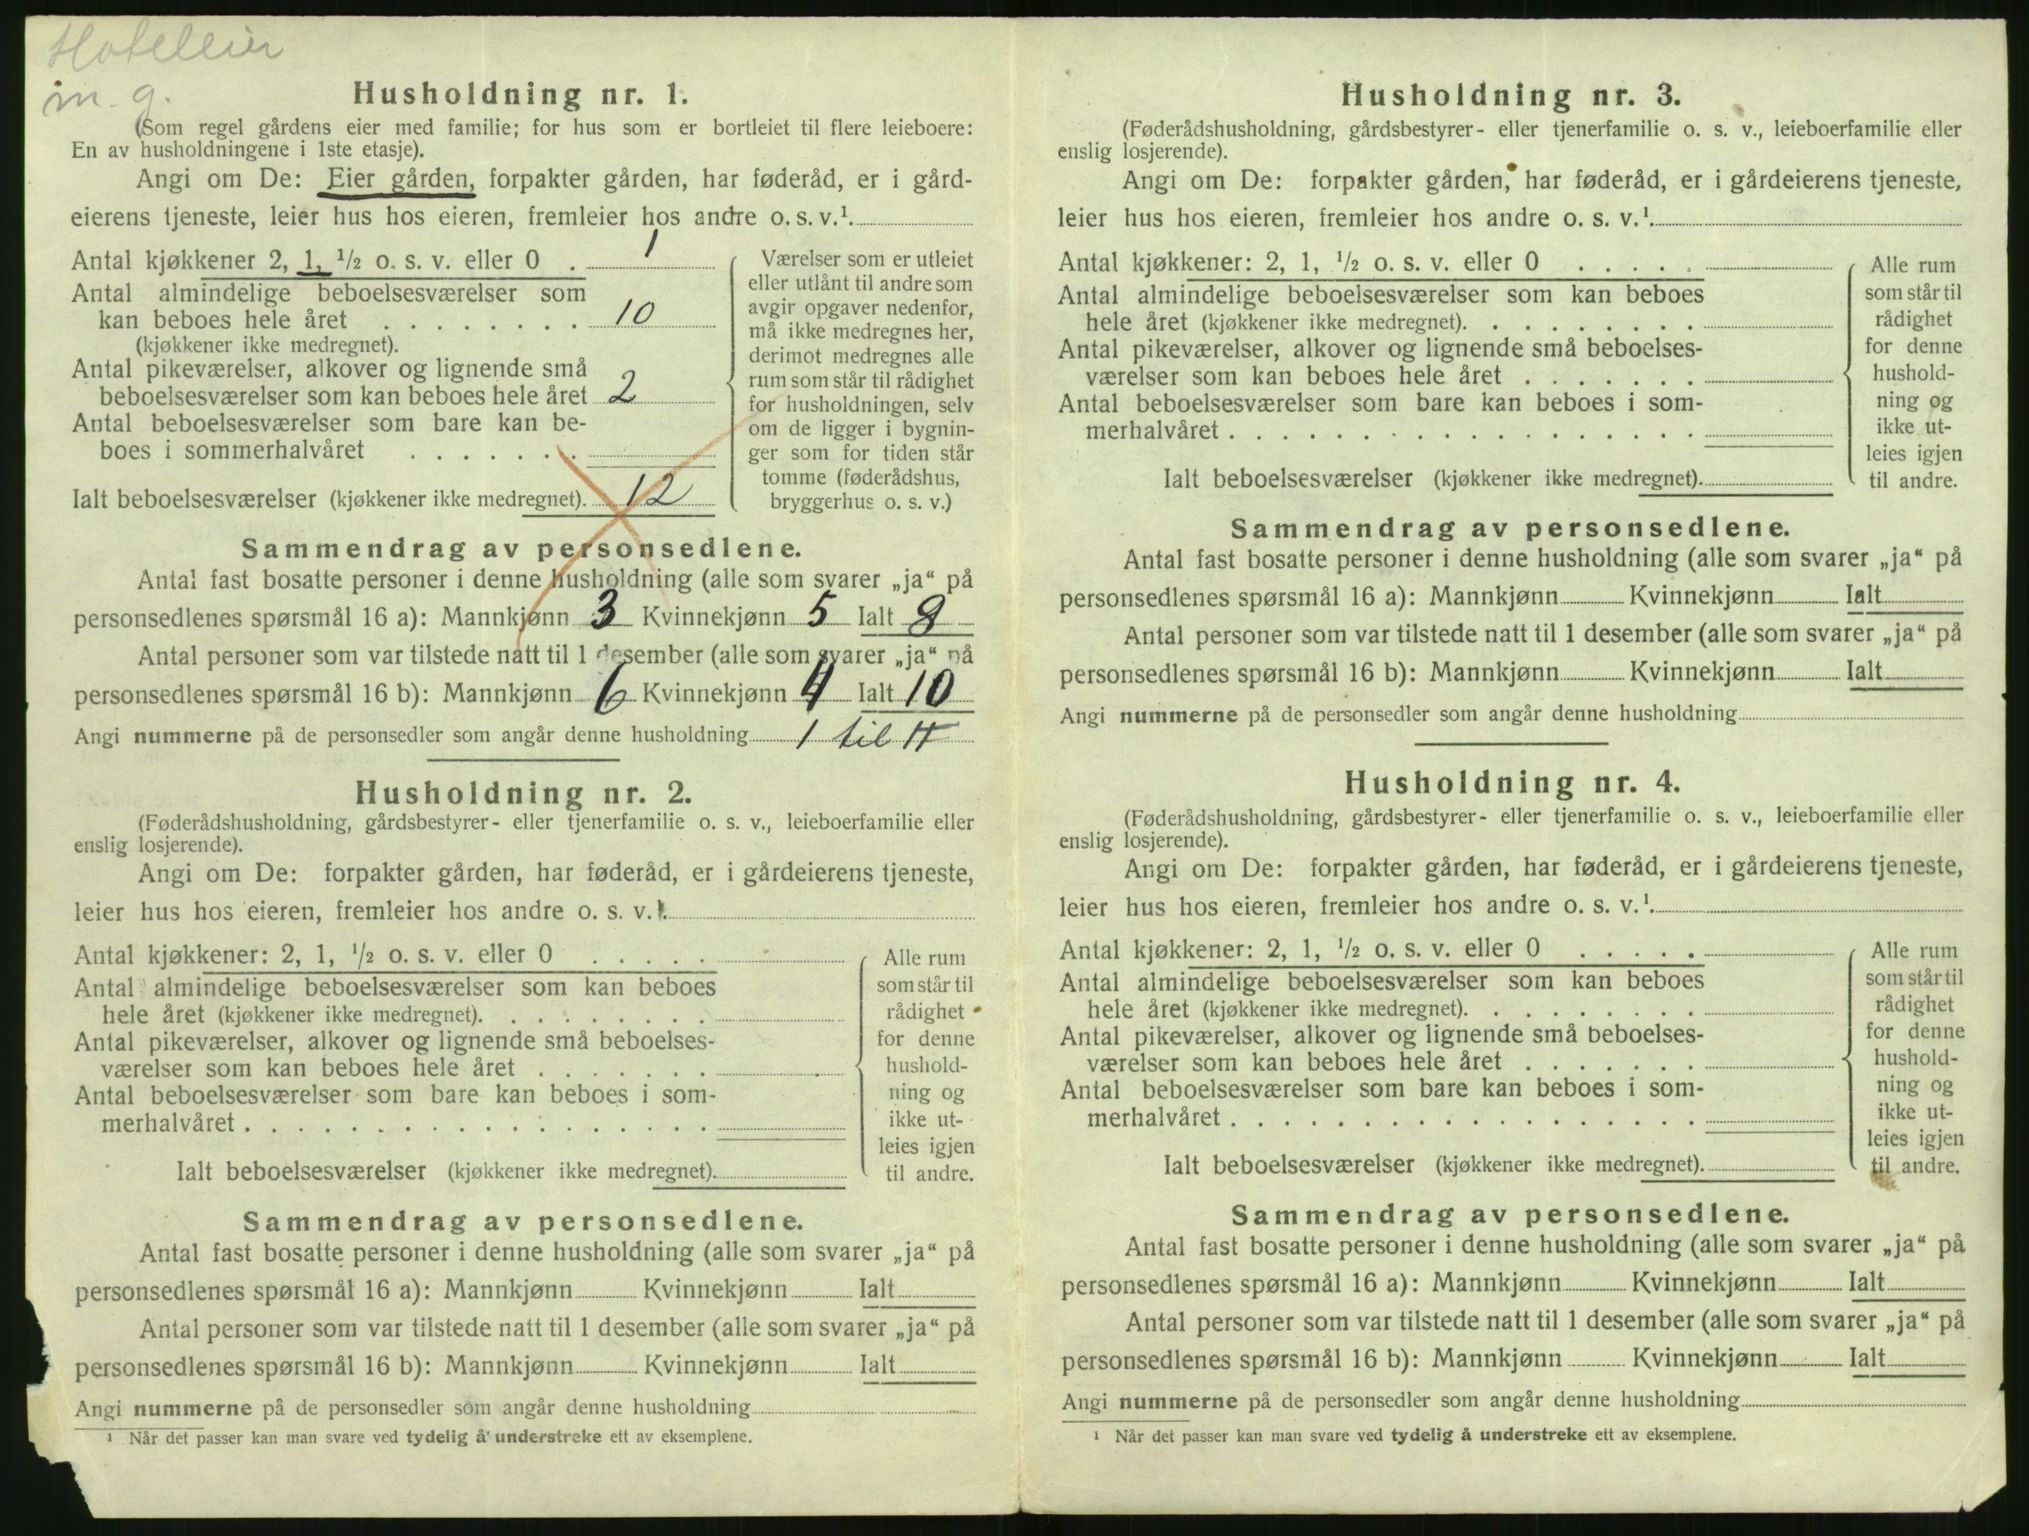 Hoteleier
m. g.
Husholdning nr. 1.
(Som regel gårdens eier med familie; for hus som er bortleiet til flere leieboere:
En av husholdningene i 1ste etasje).
Angi om De: Eier gården, forpakter gården, har føderåd, er i gård-
eierens tjeneste, leier hus hos eieren, fremleier hos andre o. s. v.¹
Antal kjøkkener 2, 1, ½ o. s. v. eller 0 . 1
Antal almindelige beboelsesværelser som
kan beboes hele året . . . . . . . . 10
(kjøkkener ikke medregnet).
Antal pikeværelser, alkover og lignende små
beboelsesværelser som kan beboes hele året 2
Antal beboelsesværelser som bare kan be-
boes i sommerhalvåret . . . . . . .
Ialt beboelsesværelser (kjøkkener ikke medregnet). 12
Værelser som er utleiet
eller utlånt til andre som
avgir opgaver nedenfor,
må ikke medregnes her,
derimot medregnes alle
rum som står til rådighet
for husholdningen, selv
om de ligger i bygnin-
ger som for tiden står
tomme (føderådshus,
bryggerhus o. s. v.)
Sammendrag av personsedlene.
Antal fast bosatte personer i denne husholdning (alle som svarer „ja“ på
personsedlenes spørsmål 16 a): Mannkjønn 3 Kvinnekjønn 5 Ialt 8
Antal personer som var tilstede natt til 1 desember (alle som svarer „ja“ på
personsedlenes spørsmål 16 b): Mannkjønn 6 Kvinnekjønn 4 Ialt 10
Angi nummerne på de personsedler som angår denne husholdning 1 til 11
Husholdning nr. 2.
(Føderådshusholdning, gårdsbestyrer- eller tjenerfamilie o. s. v., leieboerfamilie eller
enslig losjerende).
Angi om De: forpakter gården, har føderåd, er i gårdeierens tjeneste,
leier hus hos eieren, fremleier hos andre o. s. v.¹.
Antal kjøkkener: 2, 1, ½ o. s. v. eller 0 . . . . .
Antal almindelige beboelsesværelser som kan beboes
hele året (kjøkkener ikke medregnet). . . . . . . . .
Antal pikeværelser, alkover og lignende små beboelses-
værelser som kan beboes hele året . . . . . . .
Antal beboelsesværelser som bare kan beboes i som-
merhalvåret . . . . . . . . . . . . . . . . . .
Ialt beboelsesværelser (kjøkkener ikke medregnet).
Alle rum
som står til
rådighet
for denne
hushold-
ning og
ikke ut-
leies igjen
til andre.
Sammendrag av personsedlene.
Antal fast bosatte personer i denne husholdning (alle som svarer „ja“ på
personsedlenes spørsmål 16 a): Mannkjønn Kvinnekjønn Ialt
Antal personer som var tilstede natt til 1 desember (alle som svarer „ja“ på
personsedlenes spørsmål 16 b): Mannkjønn Kvinnekjønn Ialt
Angi nummerne på de personsedler som angår denne husholdning
¹ Når det passer kan man svare ved tydelig å understreke ett av eksemplene.
Husholdning nr. 3.
(Føderådshusholdning, gårdsbestyrer- eller tjenerfamilie o. s. v., leieboerfamilie eller
enslig losjerende).
Angi om De: forpakter gården, har føderåd, er i gårdeierens tjeneste,
leier hus hos eieren, fremleier hos andre o. s. v.¹.
Antal kjøkkener: 2, 1, ½ o. s. v. eller 0 . . . . .
Antal almindelige beboelsesværelser som kan beboes
hele året (kjøkkener ikke medregnet). . . . . . . . .
Antal pikeværelser, alkover og lignende små beboelses-
værelser som kan beboes hele året . . . . . . .
Antal beboelsesværelser som bare kan beboes i som-
merhalvåret . . . . . . . . . . . . . . . . . .
Ialt beboelsesværelser (kjøkkener ikke medregnet).
Alle rum
som står til
rådighet
for denne
hushold-
ning og
ikke ut-
leies igjen
til andre.
Sammendrag av personsedlene.
Antal fast bosatte personer i denne husholdning (alle som svarer „ja“ på
personsedlenes spørsmål 16 a): Mannkjønn Kvinnekjønn Ialt
Antal personer som var tilstede natt til 1 desember (alle som svarer „ja“ på
personsedlenes spørsmål 16 b): Mannkjønn Kvinnekjønn Ialt
Angi nummerne på de personsedler som angår denne husholdning
Husholdning nr. 4.
(Føderådshusholdning, gårdsbestyrer- eller tjenerfamilie o. s. v., leieboerfamilie eller
enslig losjerende).
Angi om De: forpakter gården, har føderåd, er i gårdeierens tjeneste,
leier hus hos eieren, fremleier hos andre o. s. v.¹.
Antal kjøkkener: 2, 1, ½ o. s. v. eller 0 . . . . .
Antal almindelige beboelsesværelser som kan beboes
hele året (kjøkkener ikke medregnet). . . . . . . . .
Antal pikeværelser, alkover og lignende små beboelses-
værelser som kan beboes hele året . . . . . . .
Antal beboelsesværelser som bare kan beboes i som-
merhalvåret . . . . . . . . . . . . . . . . . .
Ialt beboelsesværelser (kjøkkener ikke medregnet).
Alle rum
som står til
rådighet
for denne
hushold-
ning og
ikke ut-
leies igjen
til andre.
Sammendrag av personsedlene.
Antal fast bosatte personer i denne husholdning (alle som svarer „ja“ på
personsedlenes spørsmål 16 a): Mannkjønn Kvinnekjønn Ialt
Antal personer som var tilstede natt til 1 desember (alle som svarer „ja“ på
personsedlenes spørsmål 16 b): Mannkjønn Kvinnekjønn Ialt
Angi nummerne på de personsedler som angår denne husholdning
¹ Når det passer kan man svare ved tydelig å understreke ett av eksemplene.